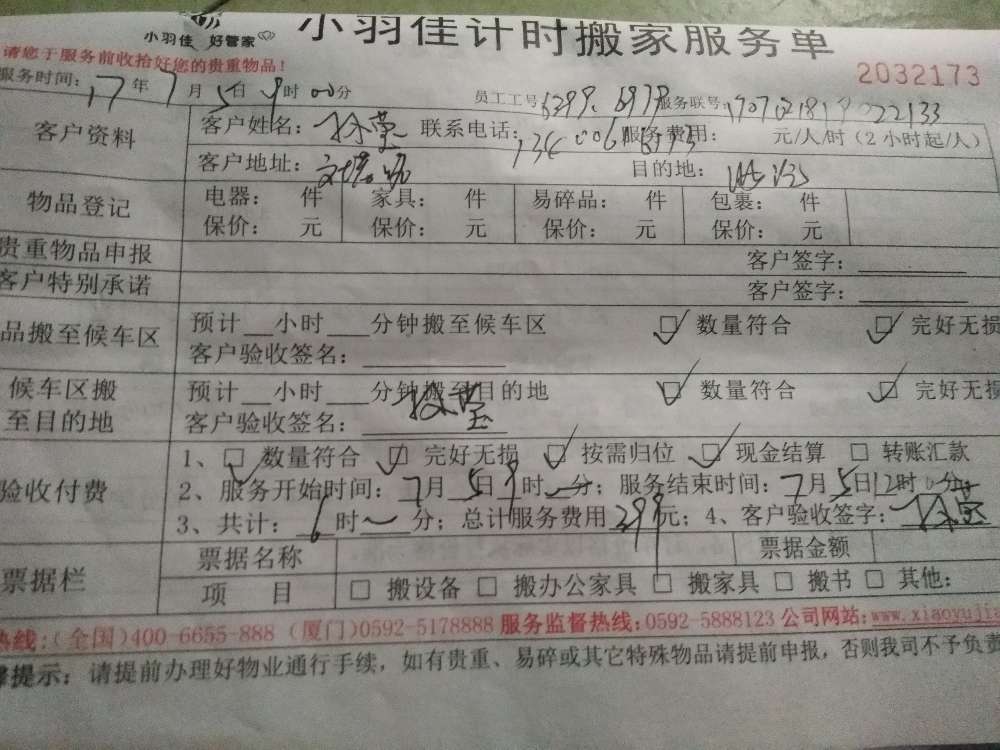 小羽佳 好管家
小羽佳计时搬家服务单
请您于服务前收拾好您的贵重物品!
2032173
服务时间: 17年7月5日9时00分 员工工号 6299、6979 服务联号
客户资料 客户姓名: 联系电话: 服务费用: 元/人/时（2小时起/人）
客户地址: 目的地:
物品登记 电器: 件 家具: 件 易碎品: 件 包裹: 件
保价: 元 保价: 元 保价: 元 保价: 元
贵重物品申报 客户签字:
客户特别承诺 客户签字:
品搬至候车区 预计__小时___分钟搬至候车区 ☑数量符合 ☑完好无损
客户验收签名:
候车区搬至目的地 预计__小时___分钟搬至目的地 ☑数量符合 ☑完好无损
客户验收签名:
验收付费 1、☑数量符合 ☑完好无损 ☑按需归位 ☑现金结算 □转账汇款
2、服务开始时间: 7月5日9时 分; 服务结束时间: 7月5日12时0分
3、共计: 6时 分; 总计服务费用299元; 4、客户验收签字:
票据栏 票据名称 票据金额
项 目 □搬设备 □搬办公家具 □搬家具 □搬书 □其他:
热线:(全国)400-6655-888 (厦门)0592-5178888 服务监督热线:0592-5888123 公司网站:www.xiaoyujia
提示: 请提前办理好物业通行手续，如有贵重、易碎或其它特殊物品请提前申报，否则我司不予负责